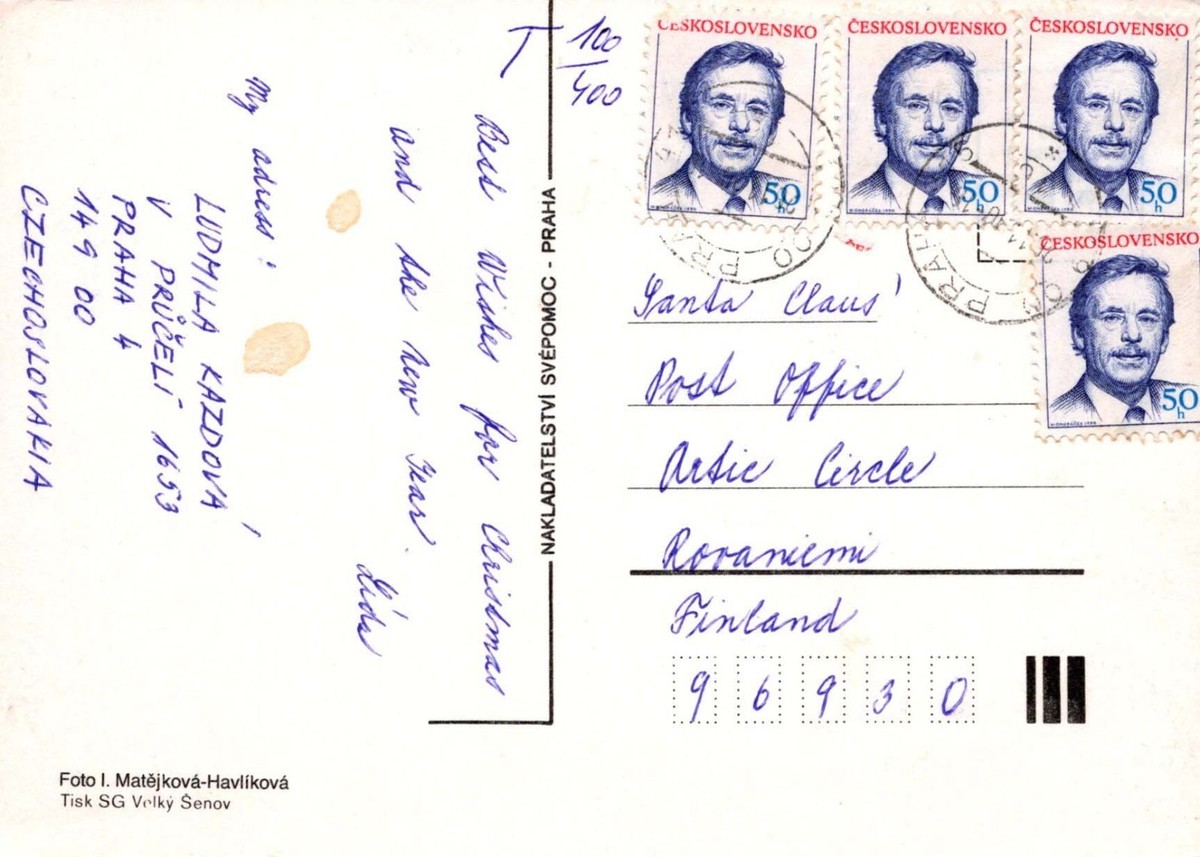 T 100/400
Best Wishes for Christmas
and the New Year.
Lída
My adress:
LUDMILA KAZDOVÁ
V PRŮČELÍ 1653
PRAHA 4
149 00
CZECHOSLOVAKIA
Foto I. Matějková-Havlíková
Tisk SG Velký Šenov
NAKLADATELSTVÍ SVÉPOMOC - PRAHA
ČESKOSLOVENSKO
50 h
ČESKOSLOVENSKO
50 h
ČESKOSLOVENSKO
50 h
ČESKOSLOVENSKO
50 h
Santa Claus'
Post Office
Artic Circle
Rovaniemi
Finland
96930